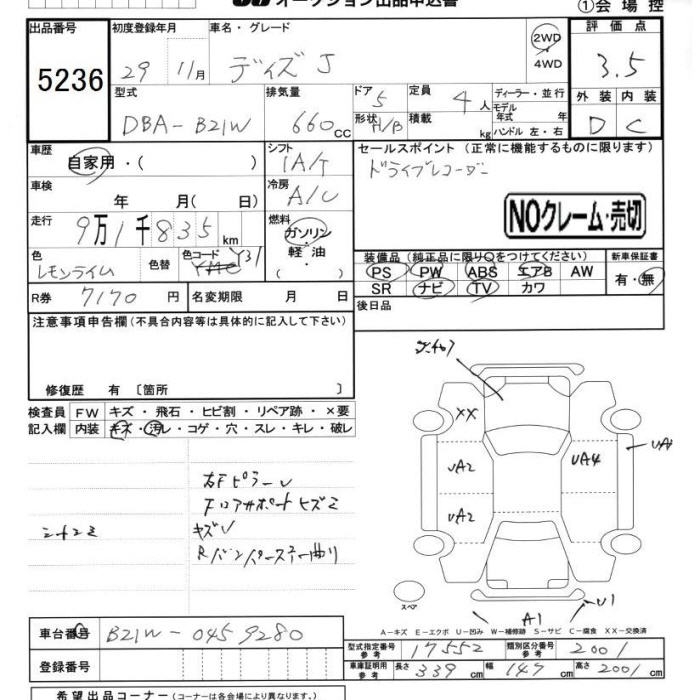 オークション出品申込書
①会場控
出品番号 初度登録年月 車名・グレード 評価点
5236 29 11月 デイズ J 2WD・4WD 3.5
型式 排気量 ドア 定員 ディーラー・並行 外装 内装
DBA-B21W 660cc 5 4人 モデル年式 年 D C
形状 H/B 積載 kg ハンドル 左・右
車歴 シフト セールスポイント (正常に機能するものに限ります)
自家用・( ) IA/T ドライブレコーダー
車検 冷房
年 月( 日) A/C
NOクレーム・売切
走行 燃料
9万1千835km ガソリン・軽油・
色 色替 色コード 装備品 (純正品に限り○をつけてください) 新車保証書
レモンライム Y31 PS PW ABS エアB AW 有・無
R券 7170円 名変期限 月 日 SR ナビ TV カワ
後日品
注意事項申告欄(不具合内容等は具体的に記入して下さい)
修復歴 有 〔箇所 〕
検査員 FW キズ・飛石・ヒビ割・リペア跡・×要
記入欄 内装 キズ・汚レ・コゲ・穴・スレ・キレ・破レ
XX
UA2 UA4 UA1
UA2
右FピラーU
キズU
A1 U1
スペア
A-キズ E-エクボ U-凹み W-補修跡 S-サビ C-腐食 XX-交換済
車台番号 B21W-0459280
型式指定番号 参考 17552 類別区分番号 参考 2001
登録番号
車庫証明用 参考 長さ 339cm 幅 147cm 高さ 2001cm
希望出品コーナー (コーナーは各会場により異なります。)